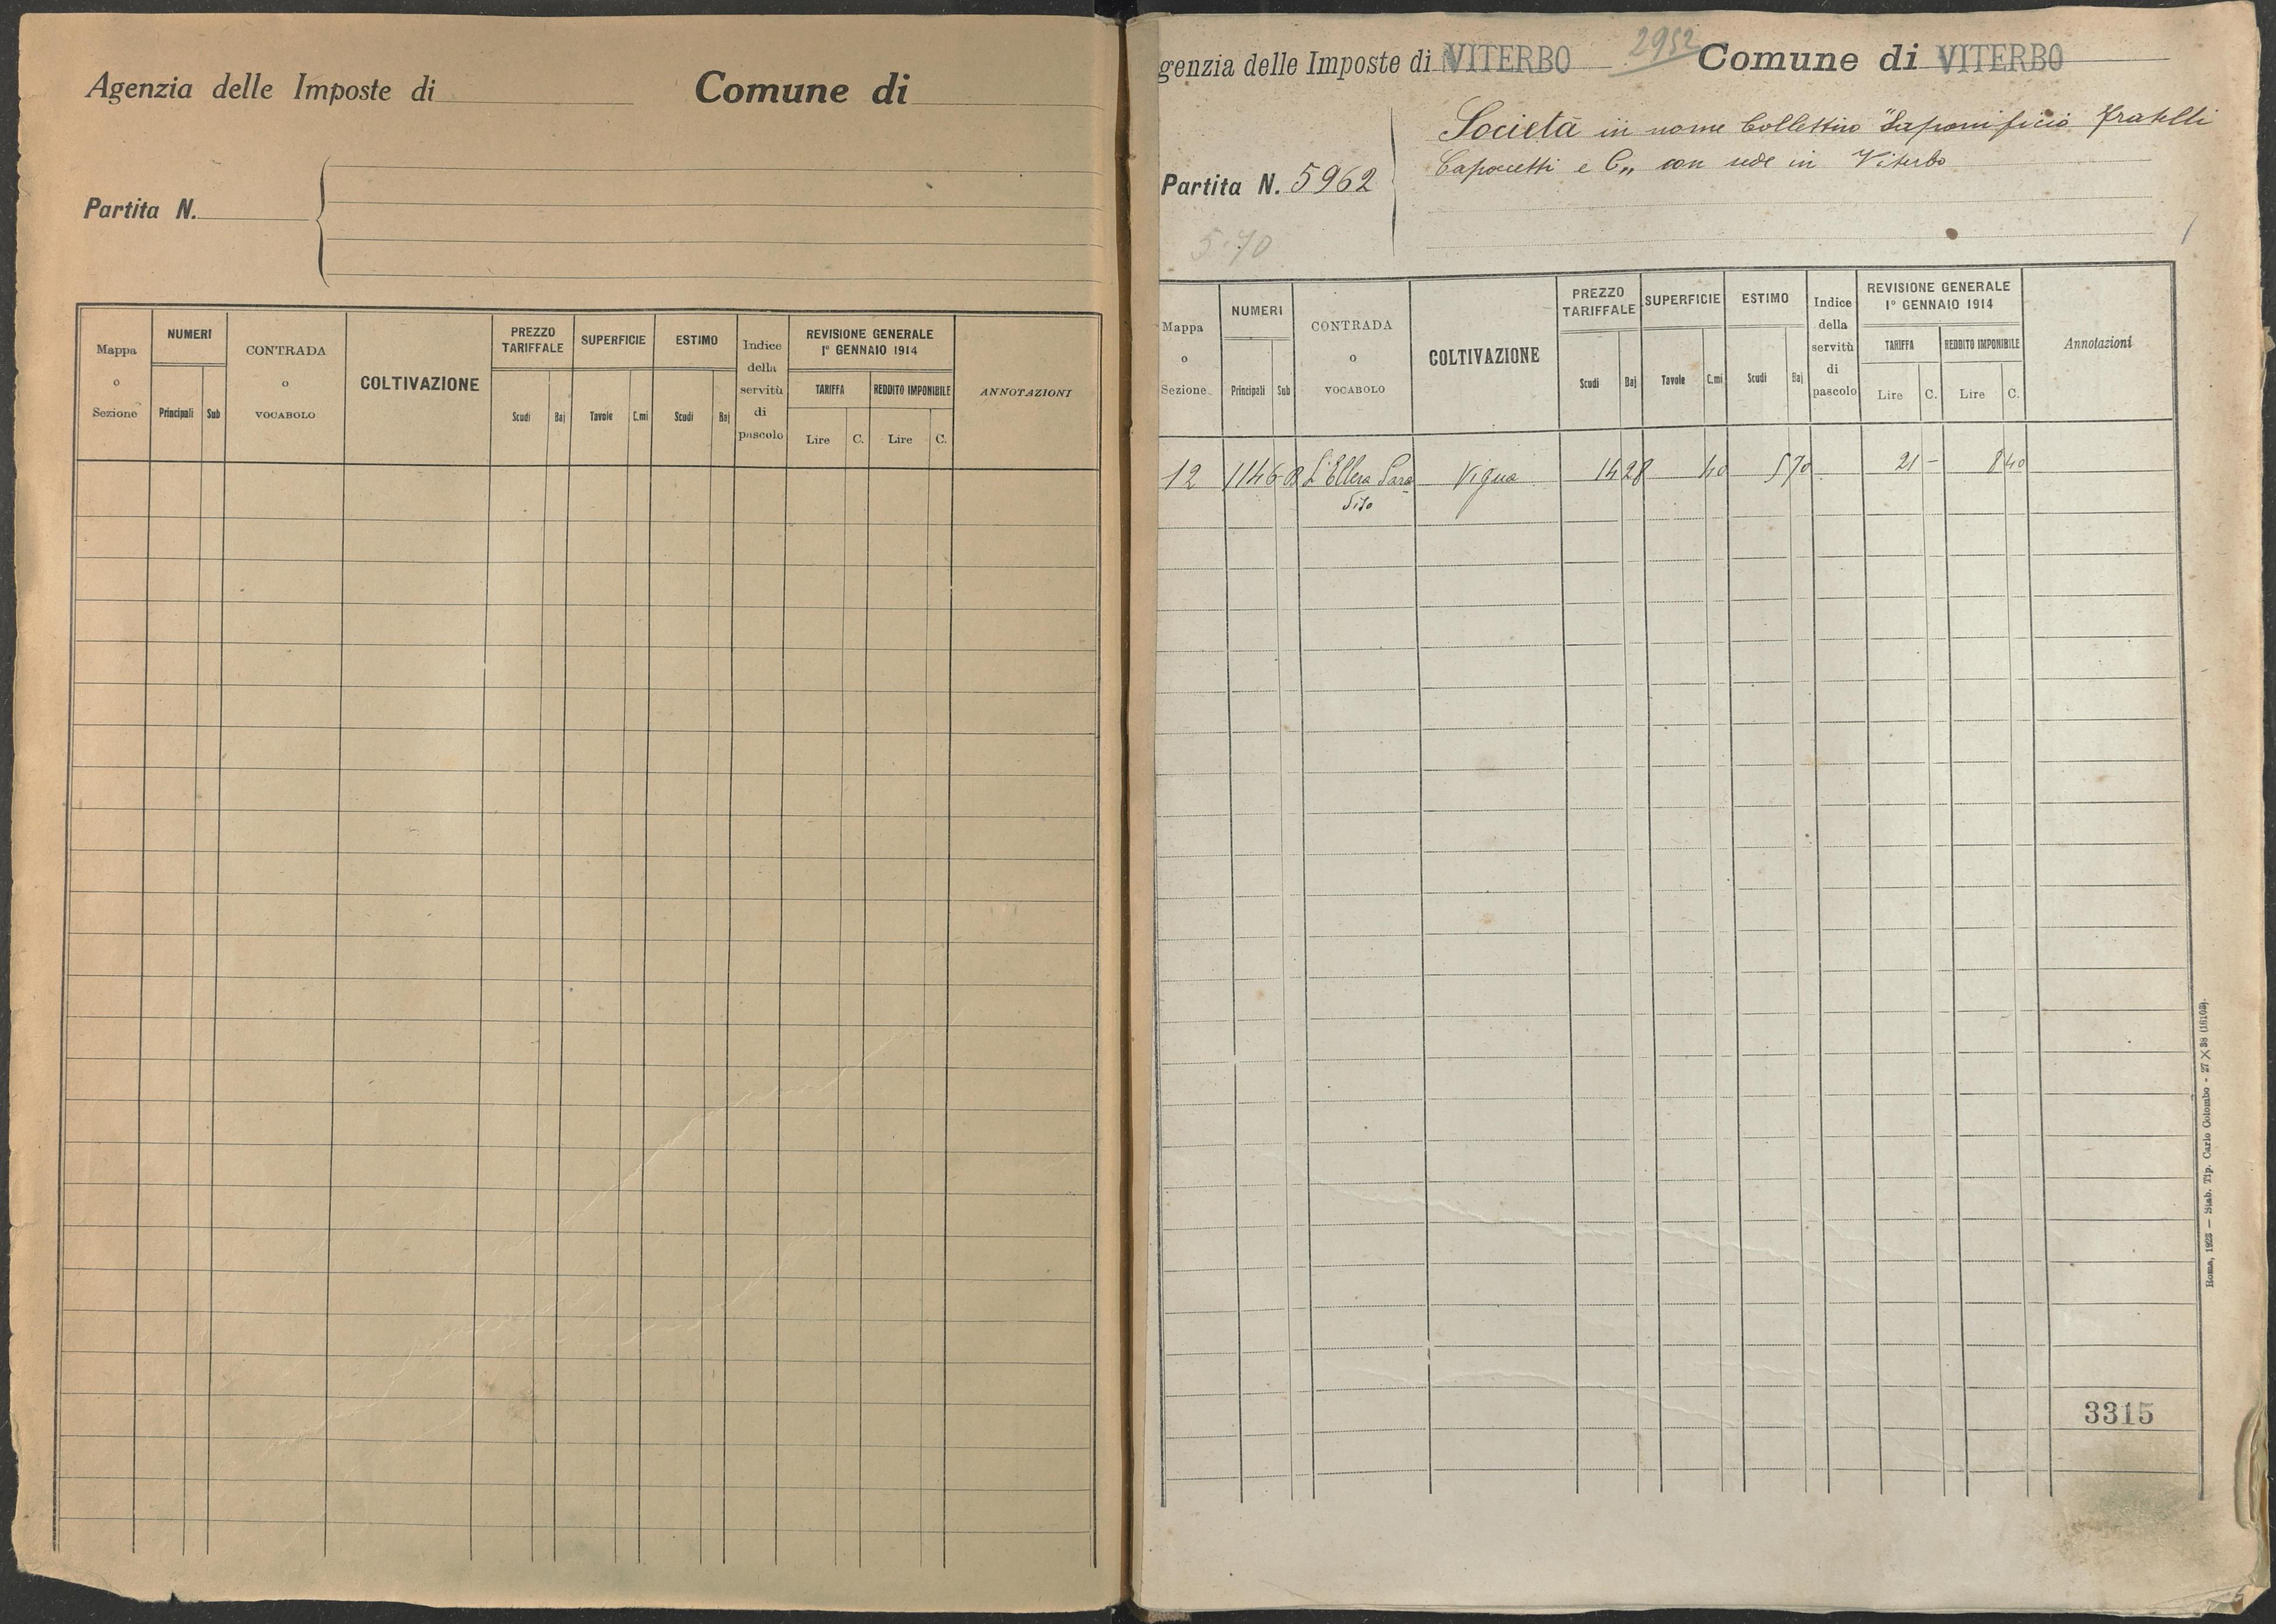 Agenzia delle Imposte di Comune di
Partita N.
Mappa o Sezione
NUMERI
Principali Sub
CONTRADA o VOCABOLO
COLTIVAZIONE
PREZZO TARIFFALE
Scudi Baj
SUPERFICIE
Tavole C.mi
ESTIMO
Scudi Baj
Indice della servitù di pascolo
REVISIONE GENERALE
1° GENNAIO 1914
TARIFFA REDDITO IMPONIBILE
Lire C. Lire C.
ANNOTAZIONI
genzia delle Imposte di VITERBO 2952 Comune di VITERBO
Società in nome Collettivo "Saponificio Fratelli
Capoccetti e C„ con sede in Viterbo
Partita N. 5962
5.70
Mappa o Sezione
NUMERI
Principali Sub
CONTRADA o VOCABOLO
COLTIVAZIONE
PREZZO TARIFFALE
Scudi Baj
SUPERFICIE
Tavole C.mi
ESTIMO
Scudi Baj
Indice della servitù di pascolo
REVISIONE GENERALE
1° GENNAIO 1914
TARIFFA REDDITO IMPONIBILE
Lire C. Lire C.
Annotazioni
12 1146 B L'Ellera Para Vigna 14 28 40 5 70 21 - 8 40
diso
Roma, 1923 — Stab. Tip. Carlo Colombo - 27 X 38 (16103).
3315